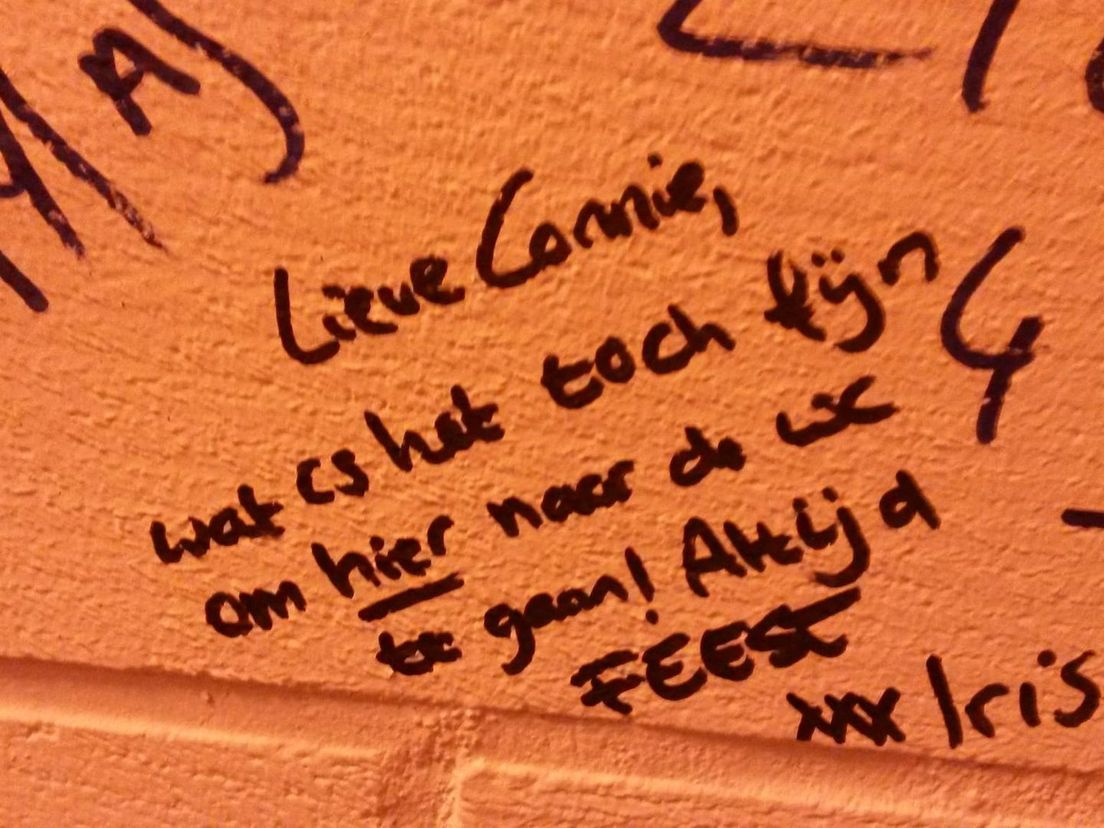 Lieve Connie,
wat is het toch fijn
om hier naar de wc
te gaan! Altijd
FEEST
xxx Iris